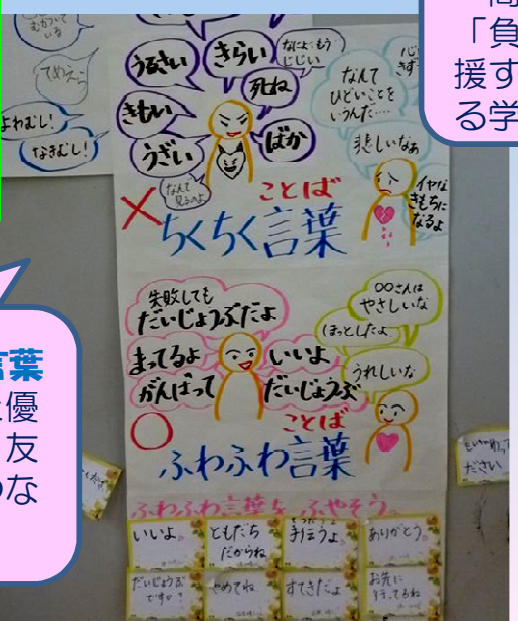 「負
援す
る学
むかついて
いる
てめえら
よわむし!
なきむし!
うるさい
きらい
なによもう
じじい
死ね
きもい
うざい
ばか
なんて
ひどいことを
いうんだ…
悲しいなぁ
イヤな
きもちに
なるよ
ことば
ちくちく言葉
失敗しても
だいじょうぶだよ
まってるよ
がんばって
いいよ
だいじょうぶ
○○さんは
やさしいな
ほっとしたよ
うれしいな
ことば
ふわふわ言葉
言葉
優
友
な
ふわふわ言葉を ふやそう。
いいよ。
ともだち
だからね
手伝うよ。
ありがとう。
だいじょうぶ
ですか?
やめてね
すてきだよ
お先に
行ってるね
ださい